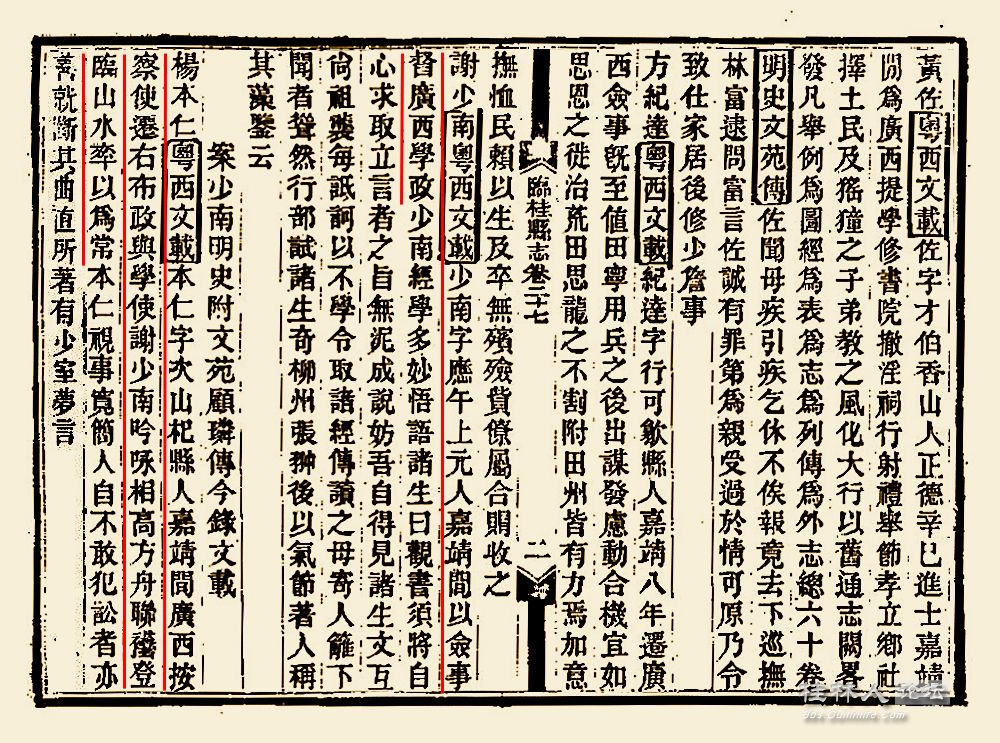 黃佐粵西文載佐字才伯香山人正德辛巳進士嘉靖
間爲廣西提學修書院撤淫祠行射禮舉節孝立鄉社
擇土民及猺獞之子弟教之風化大行以舊通志闕畧
發凡舉例爲圖經爲表爲志爲列傳爲外志總六十卷
明史文苑傳佐聞母疾引疾乞休不俟報竟去下巡撫
林富逮問富言佐誠有罪第爲親受過於情可原乃令
致仕家居後修少詹事
方紀達粵西文載紀達字行可歙縣人嘉靖八年遷廣
西僉事旣至值田寧用兵之後出謀發慮動合機宜如
思恩之徙治荒田思龍之不割附田州皆有力焉加意
臨桂縣志卷二十七
二
撫恤民賴以生及卒無殯殮貲僚屬合賻收之
謝少南粵西文載少南字應午上元人嘉靖間以僉事
督廣西學政少南經學多妙悟語諸生曰觀書須將自
心求取立言者之旨無泥成說妨吾自得見諸生文互
尙祖襲每詆訶以不學令取諸經傳讀之毋寄人籬下
聞者聳然行部試諸生奇柳州張翀後以氣節著人稱
其藻鑒云
案少南明史附文苑顧璘傳今錄文載
楊本仁粵西文載本仁字次山杞縣人嘉靖間廣西按
察使遷右布政與學使謝少南吟咏相高方舟聯襼登
臨山水率以爲常本仁視事寬簡人自不敢犯訟者亦
喜就斷其曲直所著有少室夢言
桂林人论坛